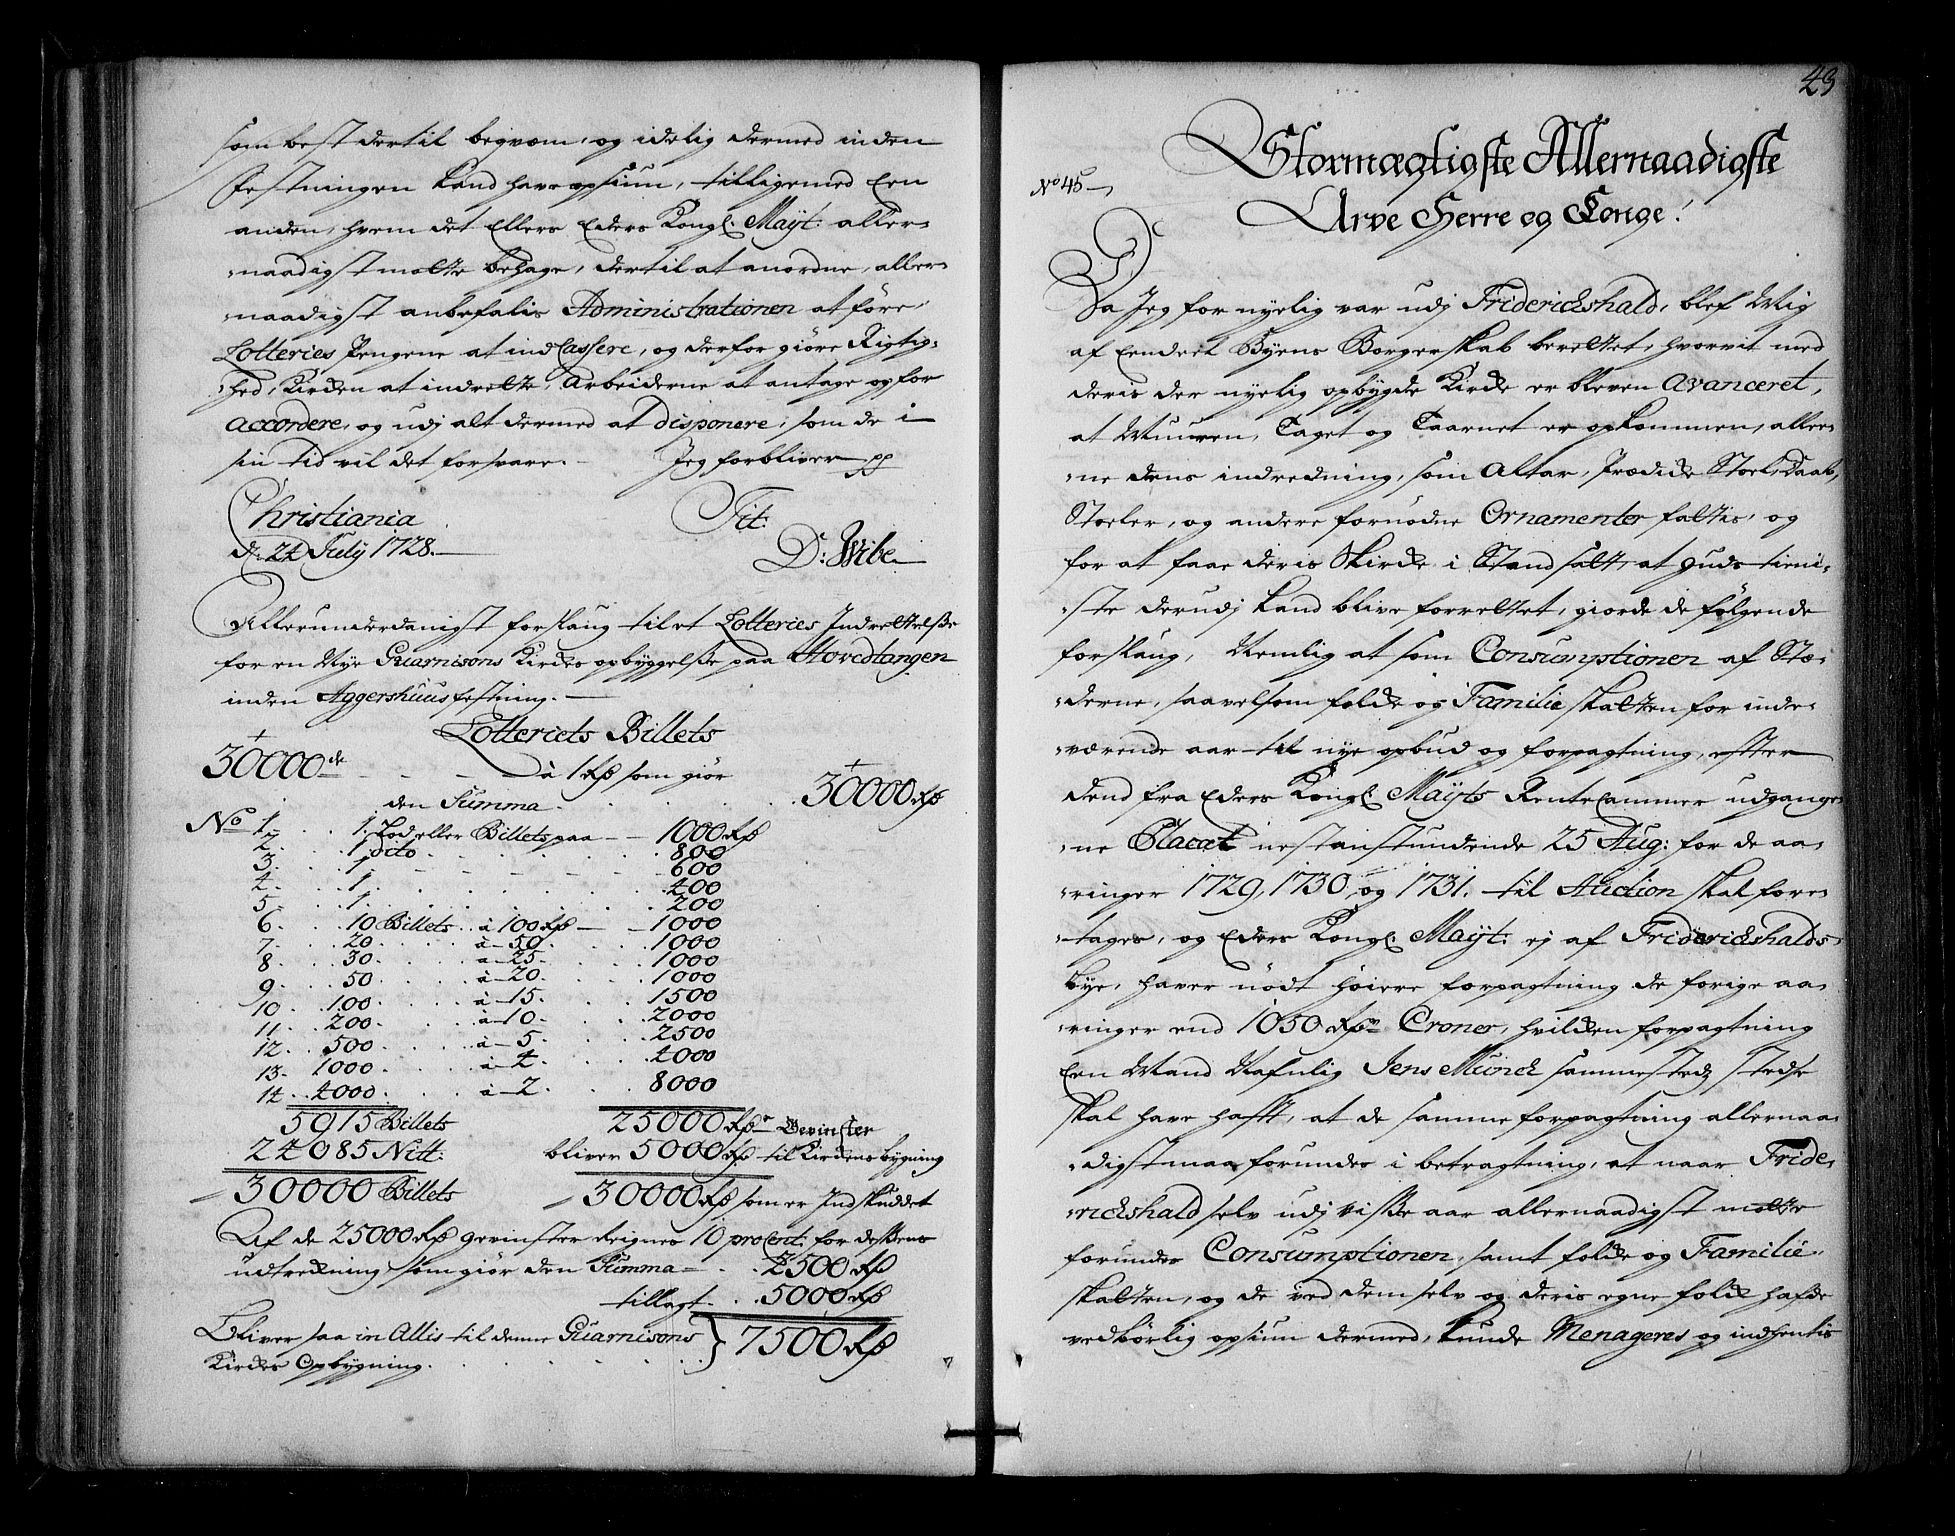 som best dertil beqvem, og idelig dermed inden
Festningen kand have opsiun, tilligemed Een
anden, hvem det Ellers Eders Kongl. Mayt: aller-
naadigst motte behage, dertil at anordne, aller-
naadigst anbefalis Administrationen at føre,
Lotteries Pengene at indCassere, og derfor giøre Rigtig-
hed, Kirken at indrette, Arbeiderne at antage og for
accordere, og udj alt dermed at disponere, som de i
sin tid vil det forsvare. Jeg forbliver pp
Christiania
d. 24 July 1728.
Tit:
D: Wibe
Allerunderdanigst forslaug til et Lotteries Indrettelsse
for en Nye Guarnisons Kirkes opbyggelsse paa Hovedtangen
inden Aggershuus festning.
Lotteriets Billets
30000 de
à 1 Rd som giør
den Summa 30000 Rd
No 1. 1. Lod eller Billets paa 1000 Rd
2. 1 dito 800
3. 1 600
4. 1. 400
5. 1. 200
6. 10 Billets à 100 Rd 1000
7. 20 à 50. 1000
8. 30. à 25. 1000
9. 50 à 20. 1000
10. 100. à 15. 1500
11. 200. à 10. 2000
12. 500. à 5. 2500
13. 1000. à 4. 4000
14. 4000. à 2. 8000
5915 Billets 25000 Rd Gevinster
24085 Nitt: bliver 5000 Rd til Kirkens bygning
30000 Billets 30000 Rd som er Indskuddet
Af de 25000 Rd gevinster Reignes 10 pro Cent: for dessens
udtrekning som giør den Summa 2500 Rd
tillagt 5000 Rd
Bliver saa in Allis til denne Guarnisons } 7500 Rd
Kirkes Opbygning.
43
Stormægtigste Allernaadigste
No 45
Arve Herre og Konge!
Da Jeg for nyelig var udj Friderichshald, blef Mig
af Eendeel Byens Borgerskab berettet, hvorvit med
deris der nyelig opbygde Kirke er bleven Avanceret,
at Muuren, Taget og Taarnet er opkommen, aller-
ne dens indredning, som Altar, Prædicke Stoel, Daab,
Stoeler, og andre fornødne Ornamenter fattis, og
for at faae deris Kirke i Stand satt, at guds tieni-
ste derudj kand blive forrettet, giorde de følgende
forslaug, Nemlig at som Consumptionen af Stæ-
derne, saavelsom folke og Familie skatten for inde-
værende aar til nye opbud og forpagtning, efter
dend fra Eders Kongl. Mayts RenteCammer udgange-
ne Placat nestanstundende 25 Aug: for de aa-
ringer 1729, 1730 og 1731. til Auction skal fore-
tages, og Eders Kongl. Mayt: ej af Friderichshalds
bye, haver nødt høiere forpagtning de forige aa-
ringer end 1050 Rd Croner, hvilken forpagtning
Een Mand Nafnlig Jens Munck sammesteds stedse
skal have hafft, at de samme forpagtning allernaa-
digst maa forundes i betragtning, at naar Fride-
richshald selv udj visse aar allernaadigst motte
forundes Consumptionen, samt folke og Familie
skatten, og de ved dem selv og deris egne folk hafde
vedbørlig opsiun dermed, kunde Menageres og indhentis